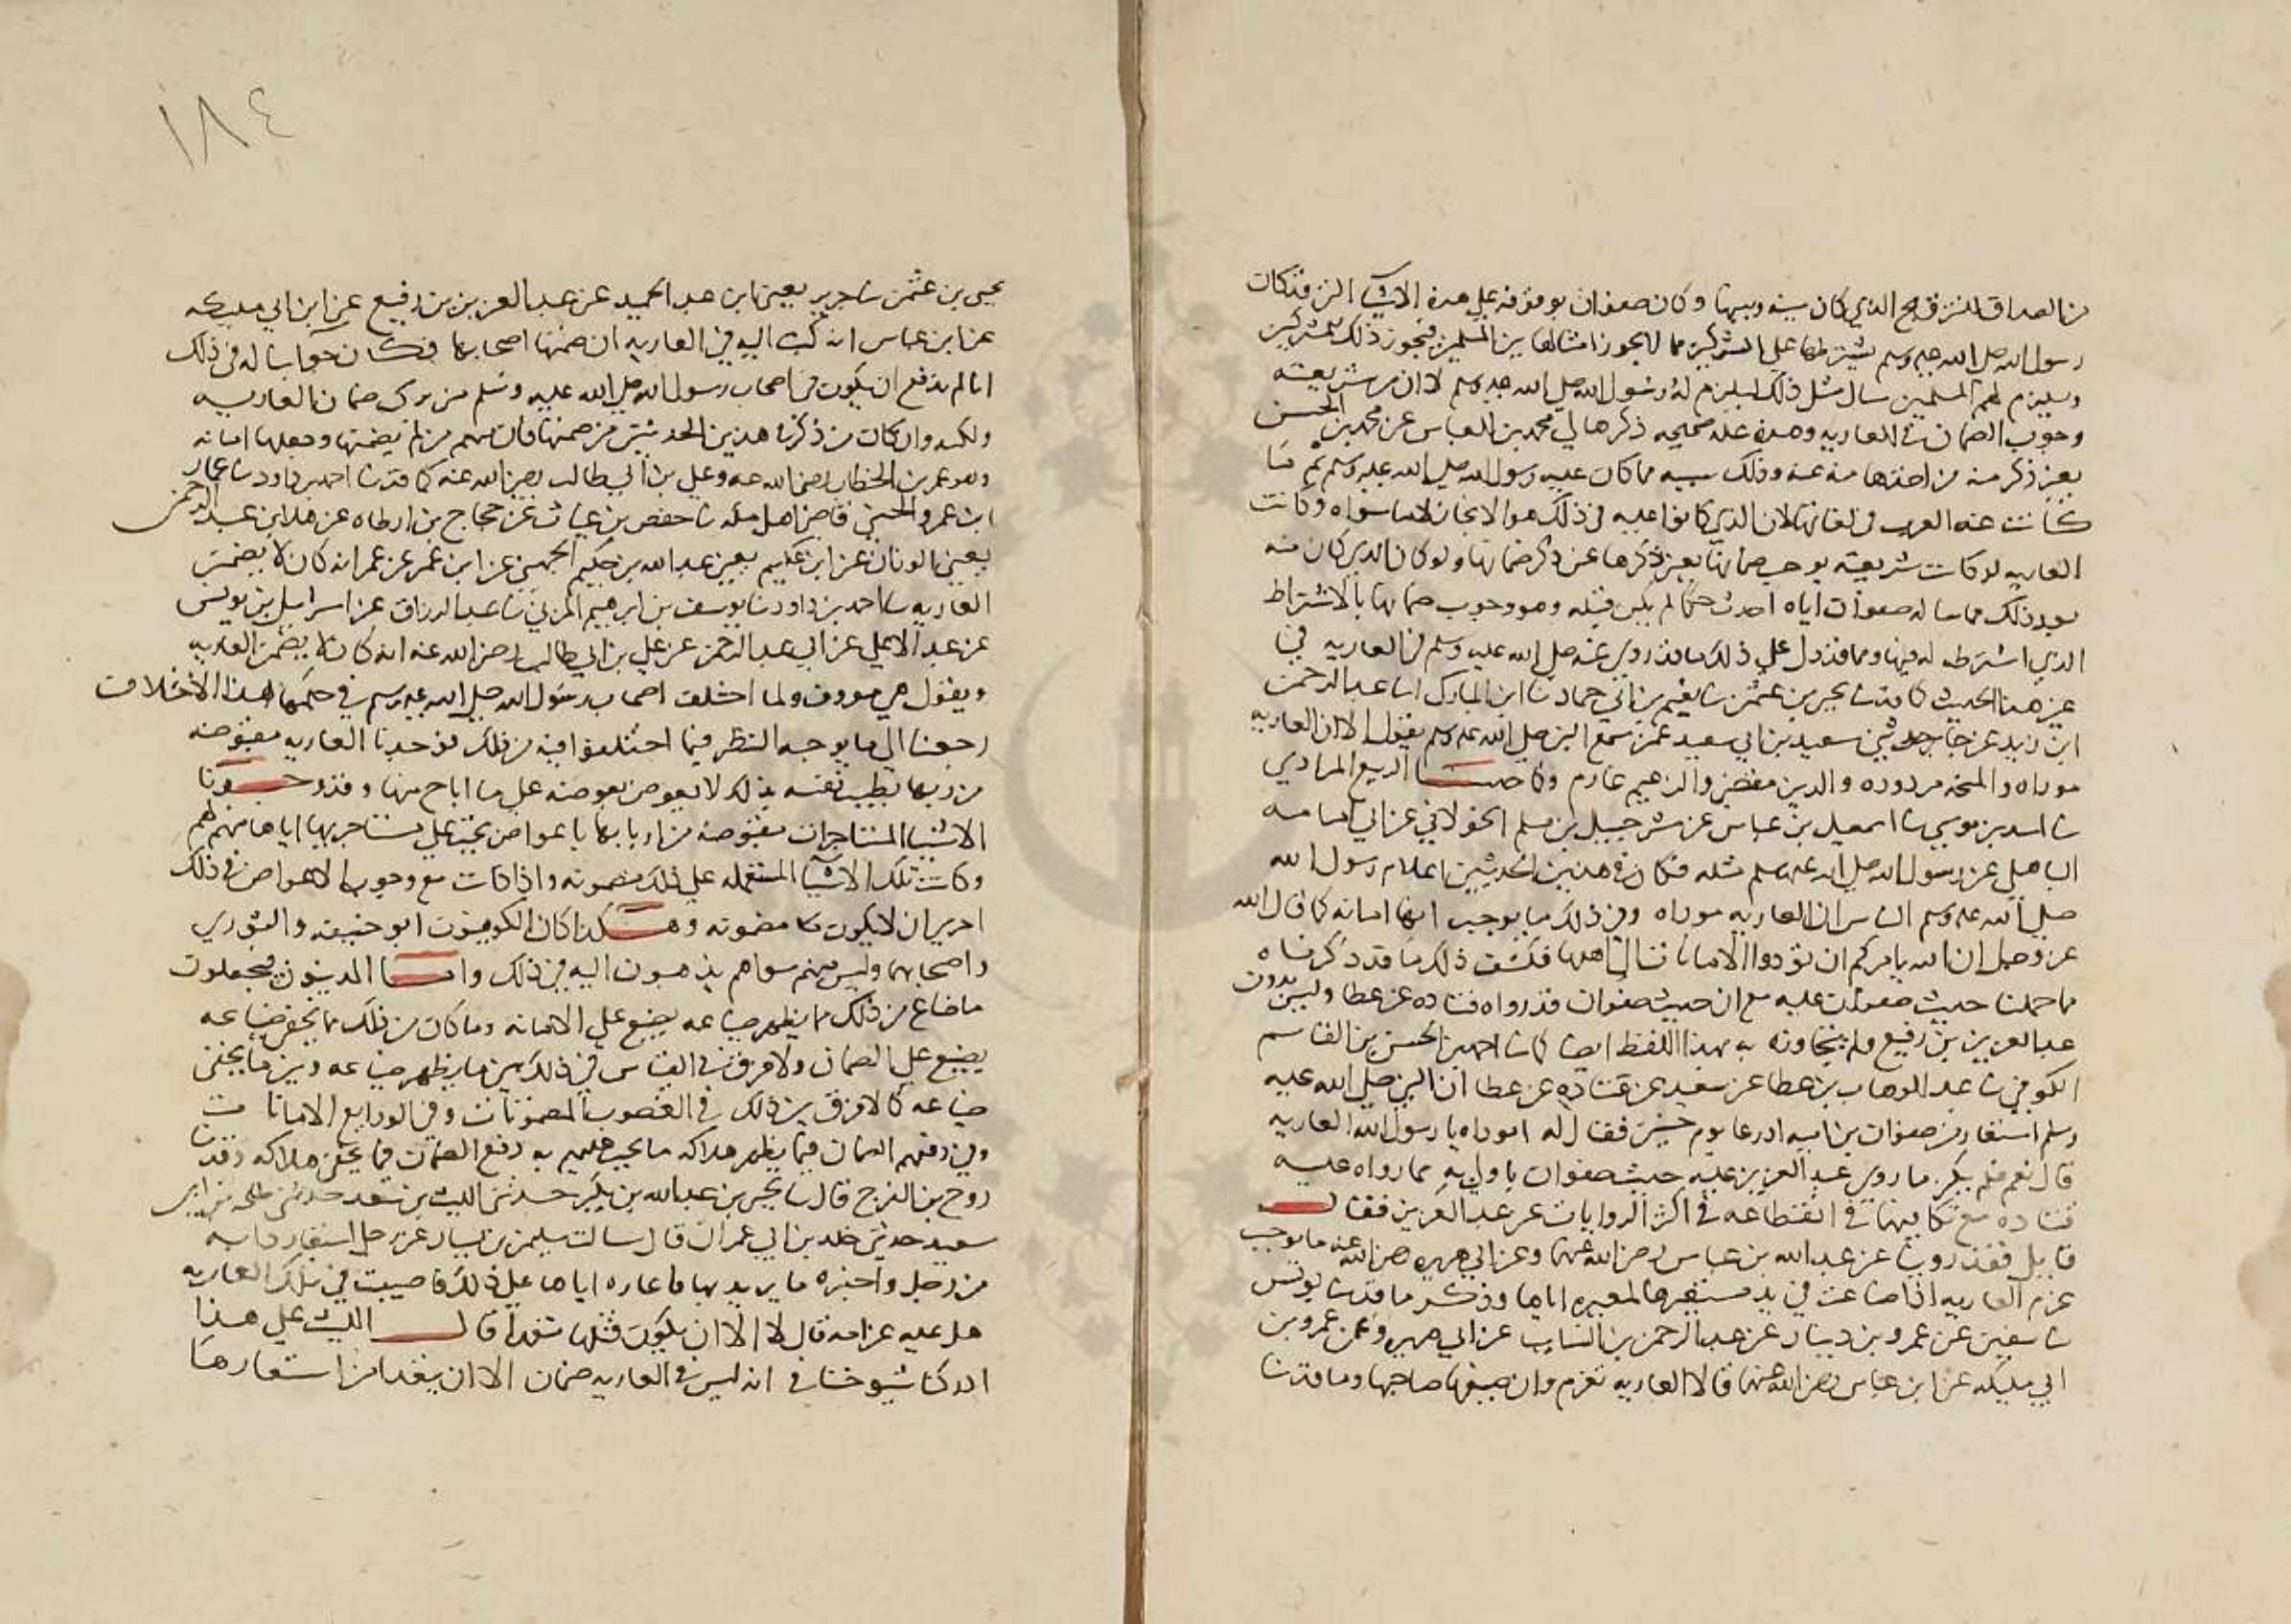 من الصداق للنزقه مح الذي كان بينه وبينها وكان صفوان يوقفه على هذه الاشيا التى قد كان
رسول الله صلى الله عليه وسلم يشترطها على المشركين مما لا يجوز امثالها بين المسلمين فيجوز ذلك للمشركين
ويلزم لهم المسلمين سال مثل ذلك ليلزم له رسول الله صلى الله عليه وسلم لا ان من شريعته
وجوب الضمان فى العاريه وهذه عله صحيحه ذكرها لي محمد بن العباس عن محمد بن الحسن
بغير ذكر منه من اخذها منه عنه وذلك شبيه مما كان عليه رسول الله صلى الله عليه وسلم ثم مما
كانت عنه العرب فى لغاتها لان الذي كانوا عليه فى ذلك هو الايجاز لا ما سواه وكانت
العاريه لو كانت شريعته يوجب ضمانها بغنى ذكرها عن ذكر ضمانها ولو كان الذي كان منه
بعد ذلك مما ساله صفوان اياه احدث حكما لم يكن قبله وهو وجوب ضمانها بالاشتراط
الذي اشترطه له فيها ومما قد دل على ذلك ما قد روي عنه صلى الله عليه وسلم فى العاريه فى
غير هذا الحديث كما قد ثنا يحيى بن عثمن ثنا نعيم بن ابي حماد ثنا ابن المبارك انا عبد الرحمن
ابن زيد عن جابر حدثني سعيد بن ابي سعيد عمن سمع النبى صلى الله عليه وسلم يقول الا ان العاريه
موداه والمنحه مردوده والدين مقضى والزعيم غارم وكما حدثنا الربيع المرادي
ثنا اسد بن موسي ثنا اسمعيل بن عباس عن شرحبيل بن مسلم الخولاني عن ابي امامه
الباهلى عن رسول الله صلى الله عليه وسلم مثله فكان فى هذين الحديثين اعلام رسول الله
صلى الله عليه وسلم الناس ان العاريه موداه وفى ذلك ما يوجب انها امانه كما قال الله
عز وجل ان الله يامركم ان تؤدوا الامانات الى اهلها فكشف ذلك ما قد ذكرناه
مما حملنا حديث صفوان عليه مع ان حديث صفوان قد رواه قتاده عن عطا وليس بدون
عبد العزيز بن رفيع ولم يتجاوز به بهذا اللفظ ايضا كما ثنا احمد بن الحسن بن القاسم
الكوفي ثنا عبد الوهاب بن عطا عن سعيد عن قتاده عن عطا ان النبى صلى الله عليه
وسلم استعار من صفوان بن اميه ادرعا يوم حنين فقال له اموداه يا رسول الله العاريه
قال نعم فلم يكن ما روي عبد العزيز عليه حديث صفوان باولى به مما رواه عليه
قتاده مع تكافيها فى انقطاعه فى اكثر الروايات عن عبد العزيز فقال
قايل فقد رويت عن عبد الله بن عباس رضى الله عنهما وعن ابي هريره رضى الله عنه ما يوجب
غرم العاريه اذا ضاعت في يد مستعيرها لمعيره اياها وذكر ما قد ثنا يونس
ثنا سفين عن عمرو بن دينار عن عبد الرحمن بن السايب عن ابي هريره وعن عمرو بن
ابي مليكه عن ابن عباس رضى الله عنهما قالا العاريه تغرم وان ضمنها صاحبها وما قد ثنا
١٨٤
يحيى بن عثمن ثنا جرير يعنى ابن عبد الحميد عن عبد العزيز بن رفيع عن ابن ابي مليكه
عن ابن عباس انه كتب اليه فى العاريه ان ضمنها اصحابها فكان جوابنا له فى ذلك
انا لم ندفع ان يكون من اصحاب رسول الله صلى الله عليه وسلم من يرى ضمان العاريه
ولكنه وان كان من ذكرنا هذين الحديثين من ضمنها فان منهم من لم يضمنها وجعلها امانه
وهو عمر بن الخطاب رضى الله عنه وعلى بن ابي طالب رضى الله عنه كما قد ثنا احمد بن داود ثنا عمار
ابن عمرو الحسني قاضى اهل مكه ثنا حفص بن غياث عن حجاج بن ارطاه عن هلال بن عبد الرحمن
يعنى الوزان عن ابن عكيم يعنى عبد الله بن حكيم الجهني عن ابن عمر عن عمر انه كان لا يضمن
العاريه ثنا احمد بن داود ثنا يوسف بن ابرهيم المزني ثنا عبد الرزاق عن اسرايل بن يونس
عن عبد الاعلى عن ابي عبد الرحمن عن على بن ابي طالب رضى الله عنه انه كان لا يضمن العاريه
ويقول هى معروف ولما اختلف اصحاب رسول الله صلى الله عليه وسلم في حكمها هذا الاختلاف
رجعنا الى ما يوجبه النظر فيما اختلفوا فيه من ذلك فوجدنا العاريه مقبوضه
من ربها بطيب نفسه بذلك لا بعوض يعوضه على ما اباح منها وقد وجدنا
الاشيا المستاجرات مقبوضه من اربابها باعواض تجب على مستاجريها اياها منهم لهم
وكانت تلك الاشيا المستعمله على ذلك غير مضمونه واذا كانت مع وجوب الاعواض فى ذلك
احري ان لا يكون مضمونه وهكذا كان الكوفيون ابو حنيفه والثوري
واصحابهما وليس منهم سواهم يذهبون اليه فى ذلك واما المدنيون فيجعلون
ما ضاع من ذلك مما يظهر ضياعه يضيع على الامانه وما كان من ذلك مما يخفى ضياعه
يضيع على الضمان ولا فرق فى القياس فى ذلك بين ما يظهر ضياعه وبين ما يخفى
ضياعه كما لا فرق بين ذلك فى الغصوب المضمونات وفى الودايع الامانات
وفي دفعهم الضمان فيما يظهر هلاكه ما يجب عليهم به دفع الضمان فيما يخفى هلاكه وقد ثنا
روح بن الفرج قال ثنا يحيى بن عبد الله بن بكير حدثنى الليث بن سعد حدثنى طلحه بن ابى
سعيد حدثنى خلد بن ابي عمران قال سالت سليمن بن يسار عن رجل استعار دابه
من رجل واخبره ما يريد بها فاعاره اياها على ذلك فاصيبت في تلك العاريه
هل عليه غرامه قال لا الا ان يكون قتلها تعدا قال الليث على هذا
ادركنا شيوخنا فى انه ليس فى العاريه ضمان الا ان يتعدا من استعارها